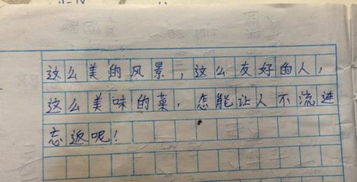 这么美的风景，这么友好的人，
这么美味的菜，怎能让人不流连
忘返呢！